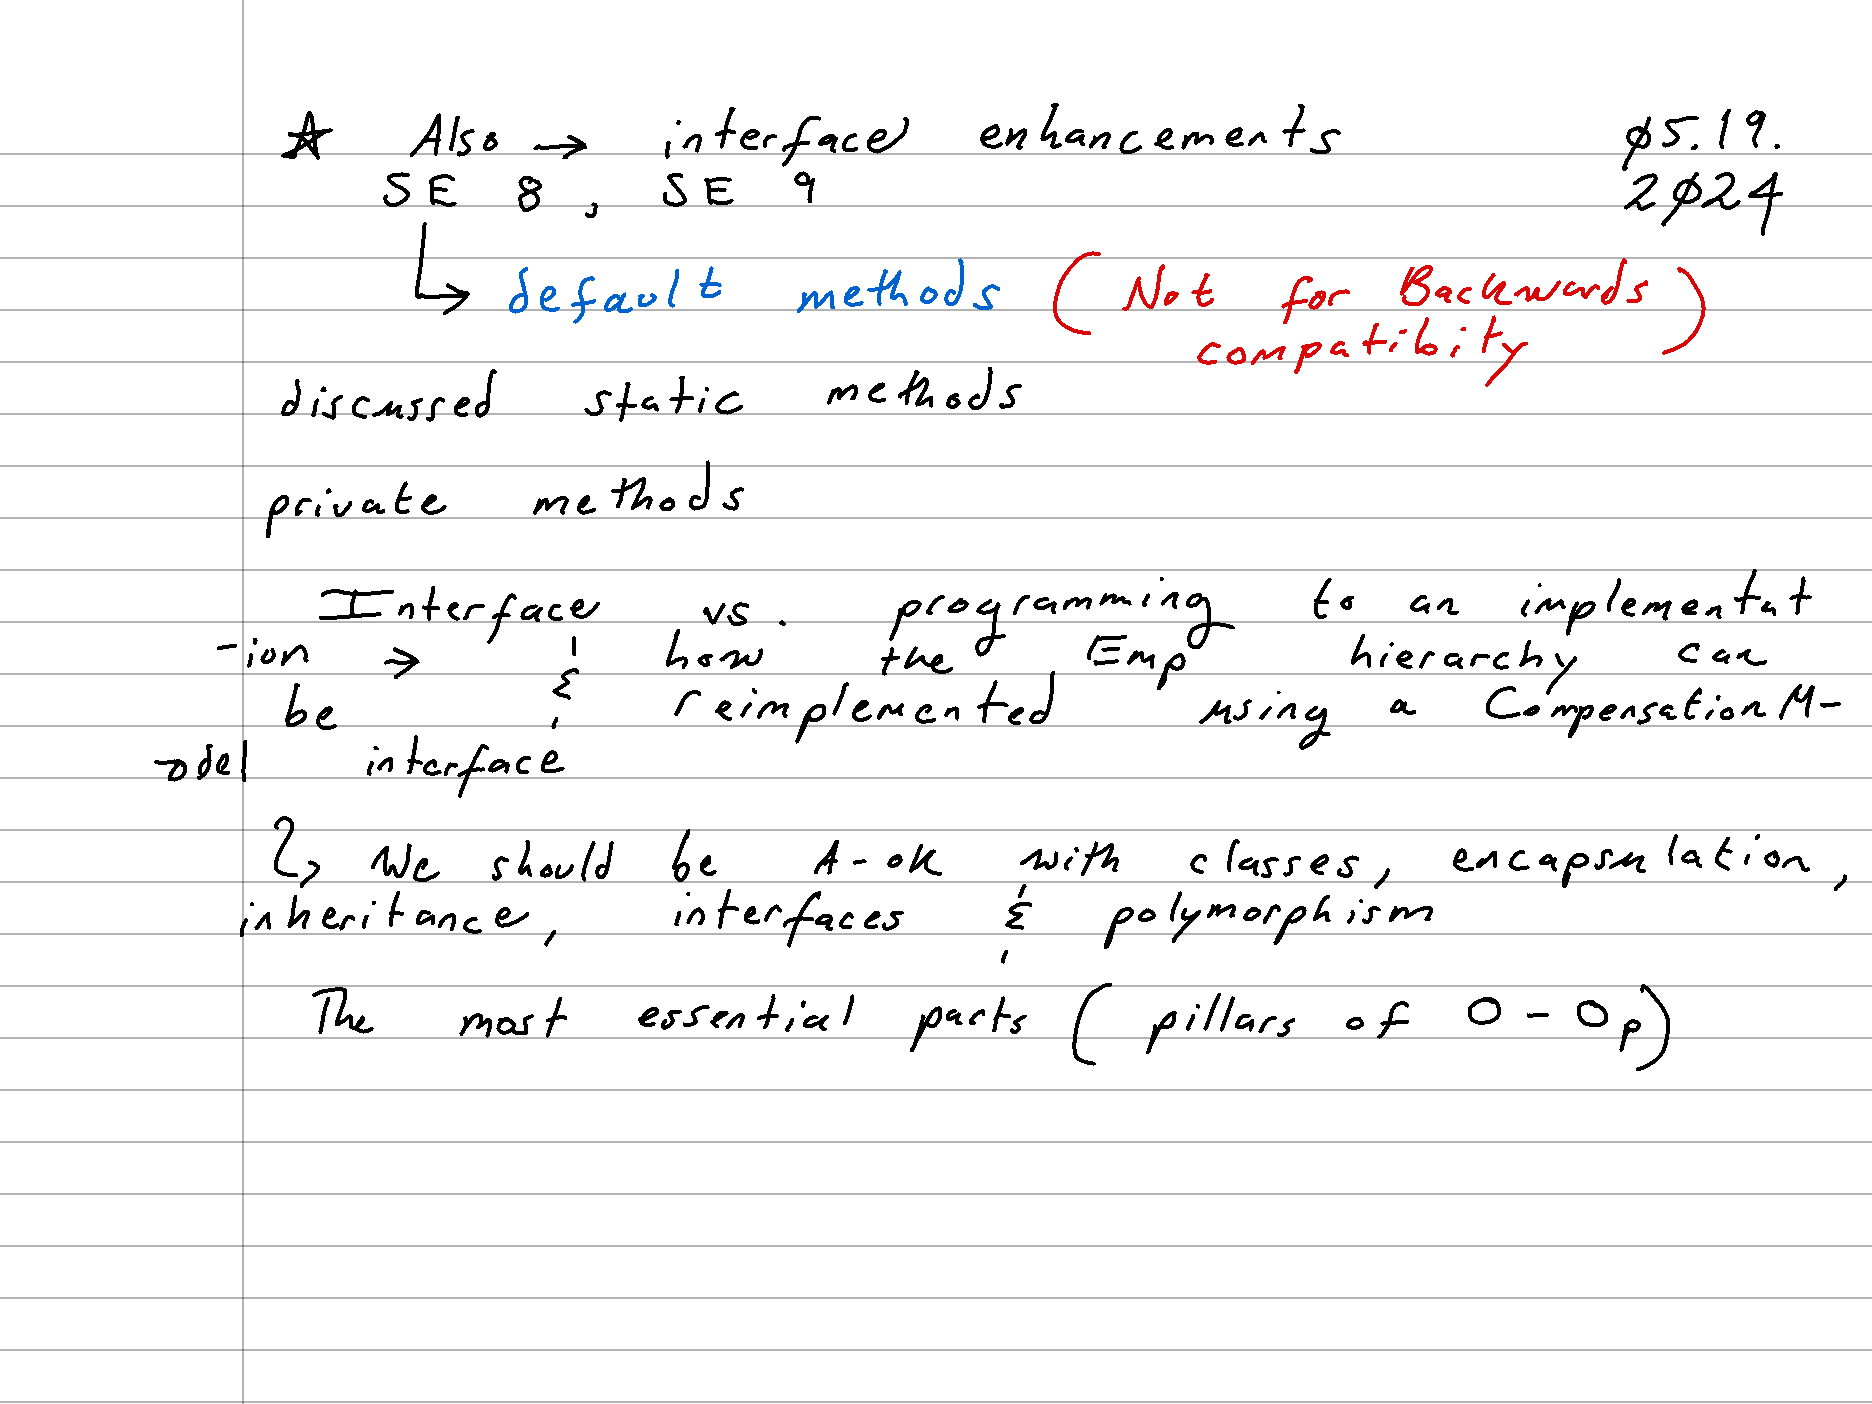 ☆ Also → interface enhancements ø5.19.
SE 8, SE 9 2ø24
↳ default methods (Not for Backwards
compatibity)
discussed static methods
private methods
Interface vs. programming to an implementat
-ion → & how the Emp hierarchy can
be reimplemented using a CompensationM-
odel interface
↳ We should be A-OK with classes, encapsulation,
inheritance, interfaces & polymorphism
The most essential parts (pillars of O-Op)